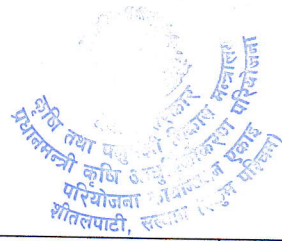 कृषि तथा पशुपन्छी विकास मन्त्रालय
प्रधानमन्त्री कृषि आधुनिकीकरण परियोजना
परियोजना कार्यान्वयन एकाइ
शीतलपाटी, सल्यान